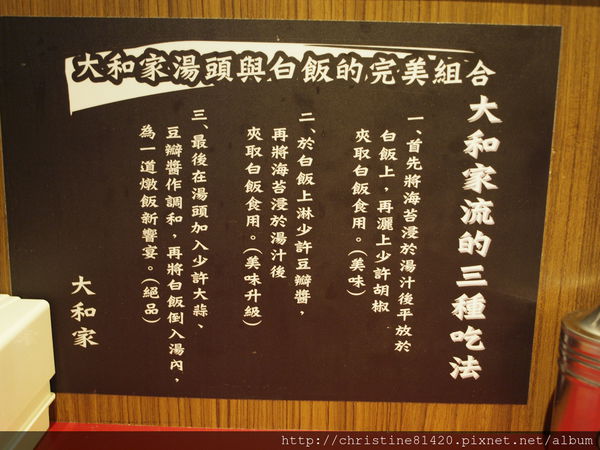 大和家湯頭與白飯的完美組合
大和家流的三種吃法
一、首先將海苔浸於湯汁後平放於
白飯上，再灑上少許胡椒
夾取白飯食用。（美味）
二、於白飯上淋少許豆瓣醬，
再將海苔浸於湯汁後
夾取白飯食用。（美味升級）
三、最後在湯頭加入少許大蒜、
豆瓣醬作調和，再將白飯倒入湯內，
為一道燉飯新饗宴。（絕品）
大和家
http://christine81420.pixnet.net/album